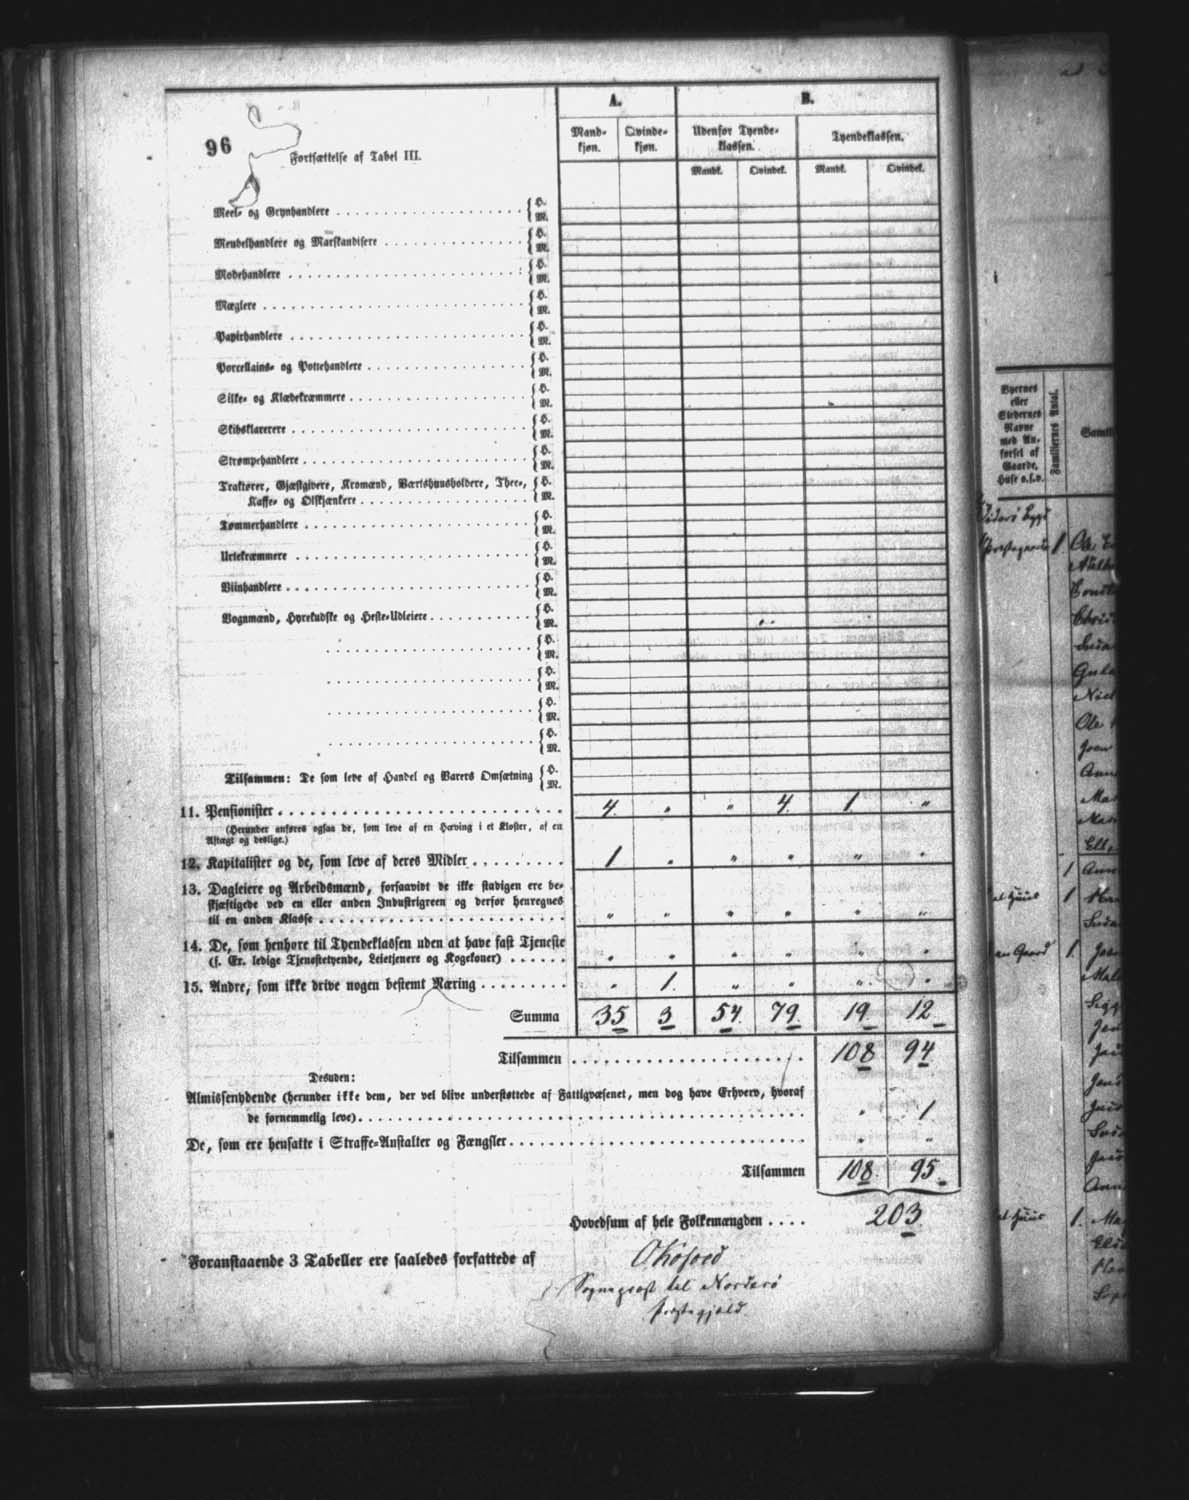 96
Fortsættelse af Tabel III.
A.
B.
Mand-
kjøn.
Qvinde-
kjøn.
Udenfor Tyende-
klassen.
Tyendeklassen.
Mandk.
Qvindek.
Mandk.
Qvindek.
Meel- og Grynhandlere { H. M.
Meubelhandlere og Marskandisere { H. M.
Modehandlere { H. M.
Mæglere { H. M.
Papirhandlere { H. M.
Porcellains- og Pottehandlere { H. M.
Silke- og Klædekræmmere { H. M.
Skibsklarerere { H. M.
Strømpehandlere { H. M.
Traktører, Gjæstgivere, Kromænd, Værtshuusholdere, Thee-,
Kaffe- og Ølskjænkere { H. M.
Tømmerhandlere { H. M.
Urtekræmmere { H. M.
Viinhandlere { H. M.
Vognmænd, Hyrekudske og Heste-Udleiere { H. M.
{ H. M.
{ H. M.
{ H. M.
{ H. M.
Tilsammen: De som leve af Handel og Varers Omsætning { H. M.
11. Pensionister 4. " " 4. 1. "
(Herunder anføres ogsaa de, som leve af en Hæving i et Kloster, af en
Aftægt og deslige.)
12. Kapitalister og de, som leve af deres Midler 1 " " " " "
13. Dagleiere og Arbeidsmænd, forsaavidt de ikke stadigen ere be-
skjæftigede ved en eller anden Industrigreen og derfor henregnes
til en anden Klasse " " " " " "
14. De, som henhøre til Tyendeklassen uden at have fast Tjeneste
(f. Ex. ledige Tjenestetyende, Leietjenere og Kogekoner) " " " " " "
15. Andre, som ikke drive nogen bestemt Næring " 1. " " " "
Summa 35 3 54. 79. 19 12
Tilsammen 108 94
Desuden:
Almissenydende (herunder ikke dem, der vel blive understøttede af Fattigvæsenet, men dog have Erhverv, hvoraf
de fornemmelig leve) " 1.
De, som ere hensatte i Straffe-Anstalter og Fængsler " "
Tilsammen 108. 95.
Hovedsum af hele Folkemængden 203.
Foranstaaende 3 Tabeller ere saaledes forfattede af
Sognepræst til Norderö
Præstegjæld.
Byernes
eller
Stedernes
Navne
med An-
førsel af
Gaarde,
Huse o.s.v.
Familiernes Antal.
1
Ole
Ole
Anne
1 Anne
1
1.
1.